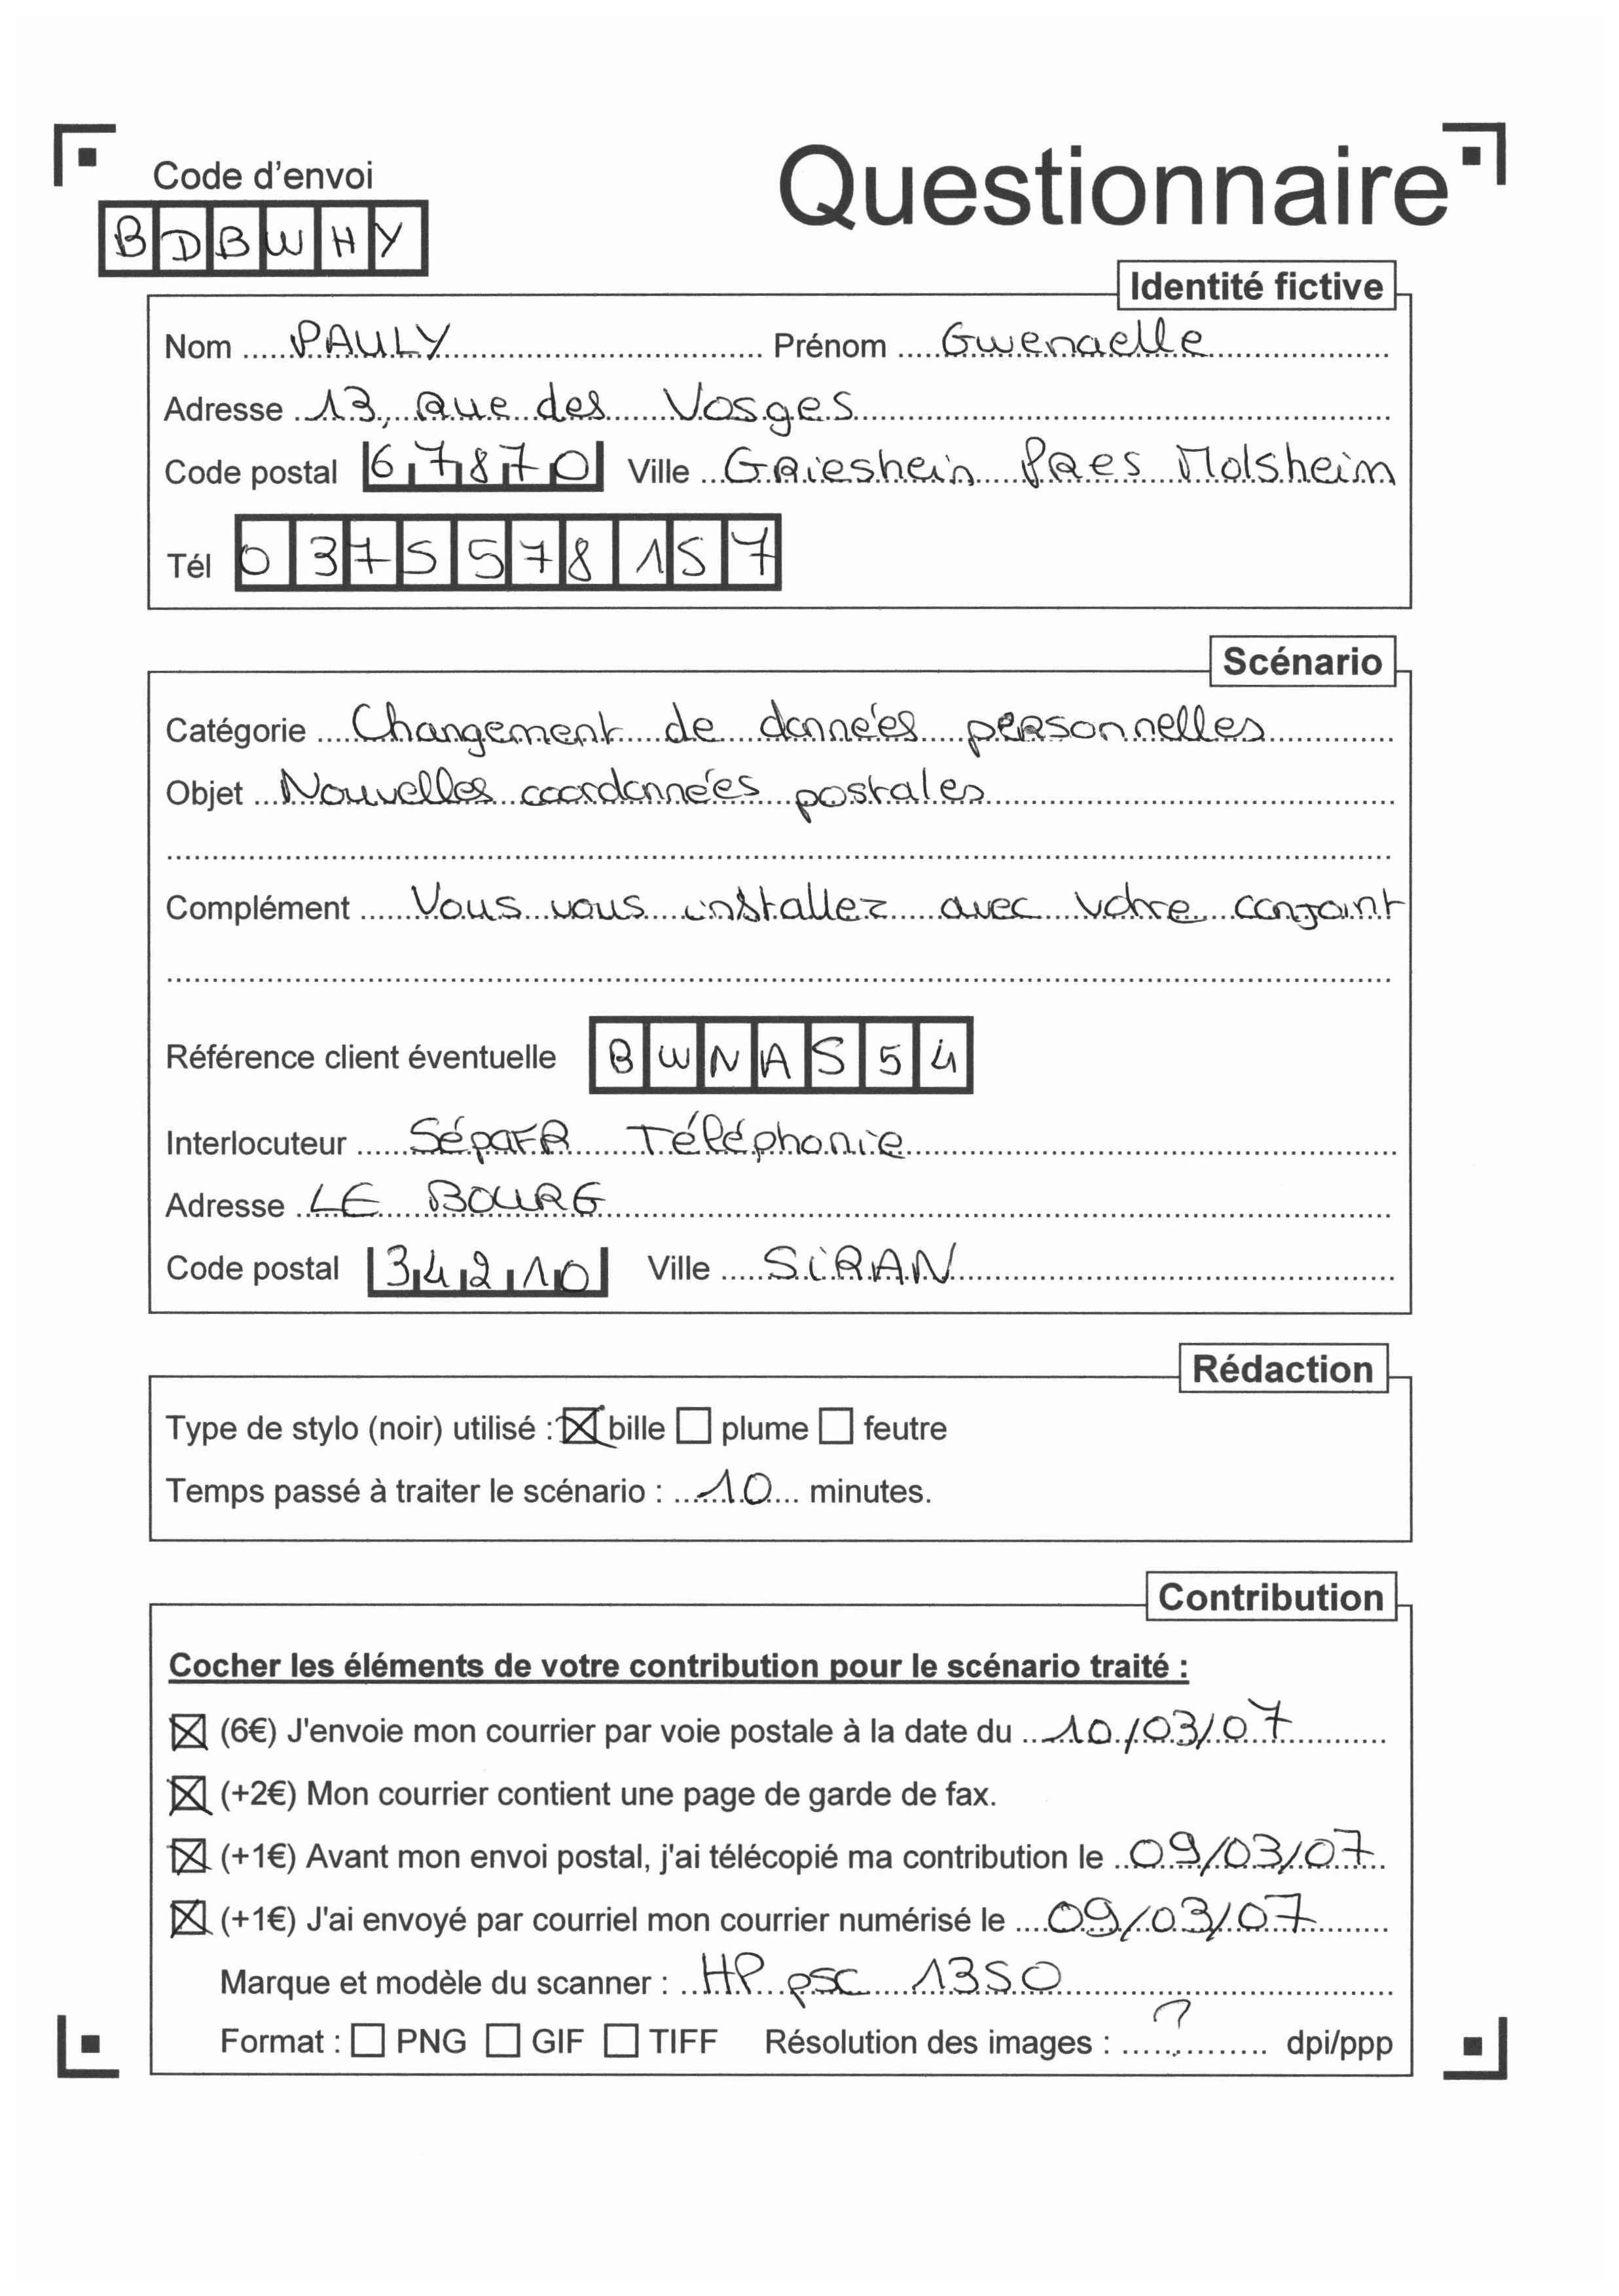 Code d'envoi
Questionnaire
BDBWHY
Identité fictive
Nom PAULY Prénom Gwenaelle
Adresse 13, Rue des Vosges
Code postal 67870 Ville GRieshein PRes Molsheim
Tél 0375578157
Scénario
Catégorie Changement de données personnelles
Objet Nouvelles coordonnées postales
Complément Vous vous installez avec votre conjoint
Référence client éventuelle BWNAS54
Interlocuteur SépaFR Téléphonie
Adresse LE BOURG
Code postal 34210 Ville SiRAN
Rédaction
Type de stylo (noir) utilisé : ☒ bille ☐ plume ☐ feutre
Temps passé à traiter le scénario : 10 minutes.
Contribution
Cocher les éléments de votre contribution pour le scénario traité :
☒ (6€) J'envoie mon courrier par voie postale à la date du 10/03/07
☒ (+2€) Mon courrier contient une page de garde de fax.
☒ (+1€) Avant mon envoi postal, j'ai télécopié ma contribution le 09/03/07
☒ (+1€) J'ai envoyé par courriel mon courrier numérisé le 09/03/07
Marque et modèle du scanner : HP psc 1350
Format : ☐ PNG ☐ GIF ☐ TIFF Résolution des images : ? dpi/ppp